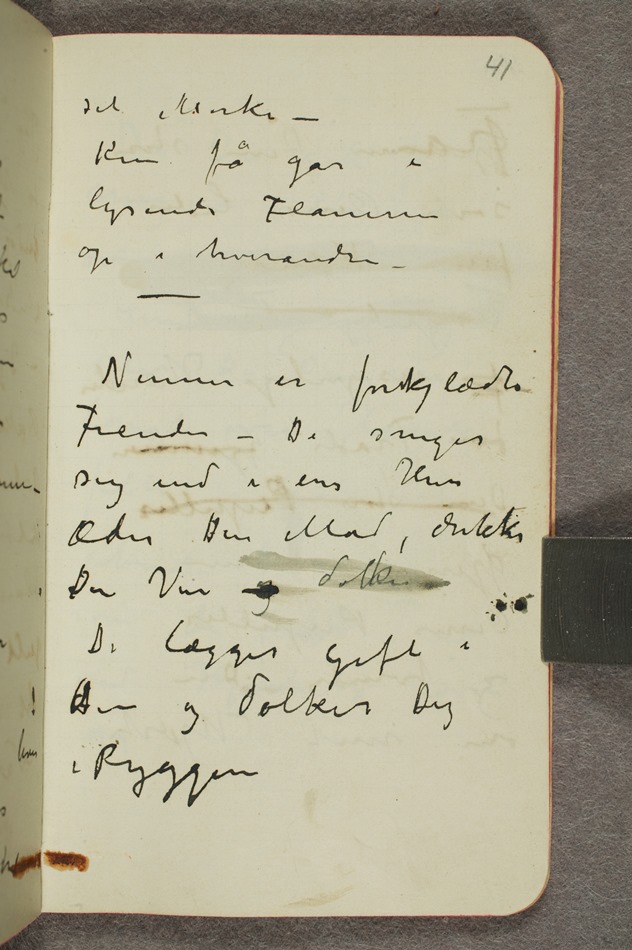 41
sit Mørke –
Kun få går i
lysende Flammer
op i hverandre –
Venner er forklædte
Fiender – De sniger
sig ind i ens Hus
Æder Din Mad, drikker
Din Vin og dolker
De lægger Gift i
Din og dolker Dig
i Ryggen